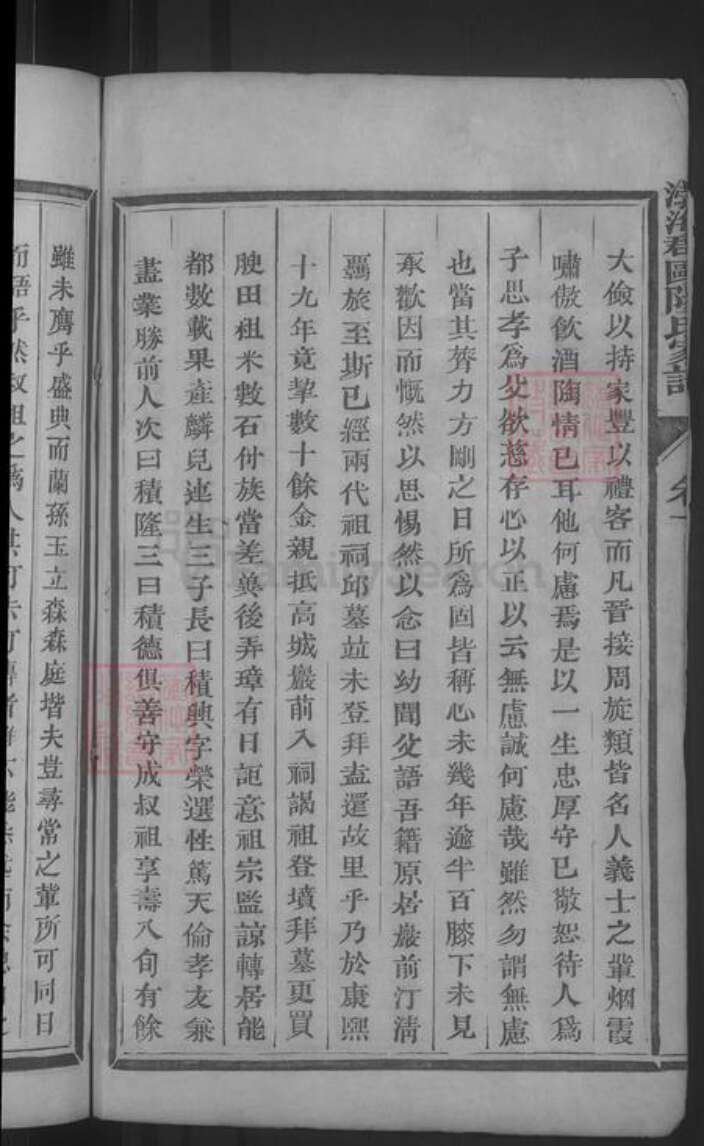 大儉以持家豐以禮客而凡晉接周旋類皆名人義士之輩烟霞
嘯傲飲酒陶情已耳他何慮焉是以一生忠厚守已敬恕待人為
子思孝為父欲慈存心以正以云無慮誠何慮哉雖然勿謂無慮
也當其膂力方剛之日所為固皆稱心未幾年逾半百膝下未見
承歡因而慨然以思惕然以念曰幼聞父語吾籍原居巖前汀清
羈旅至斯已經兩代祖祠邱墓並未登拜盍還故里乎乃於康熙
十九年竟挈數十餘金親抵高城巖前入祠謁祖登墳拜墓更買
腴田租米數石付族當差奠後弄璋有日詎意祖宗監諒轉居能
都數載果產麟兒連生三子長曰積興字榮選性篤天倫孝友兼
盡業勝前人次曰積隆三曰積德俱善守成叔祖享壽八旬有餘
雖未膺乎盛典而蘭孫玉立森森庭堦夫豈尋常之輩所可同日
FamilySearch